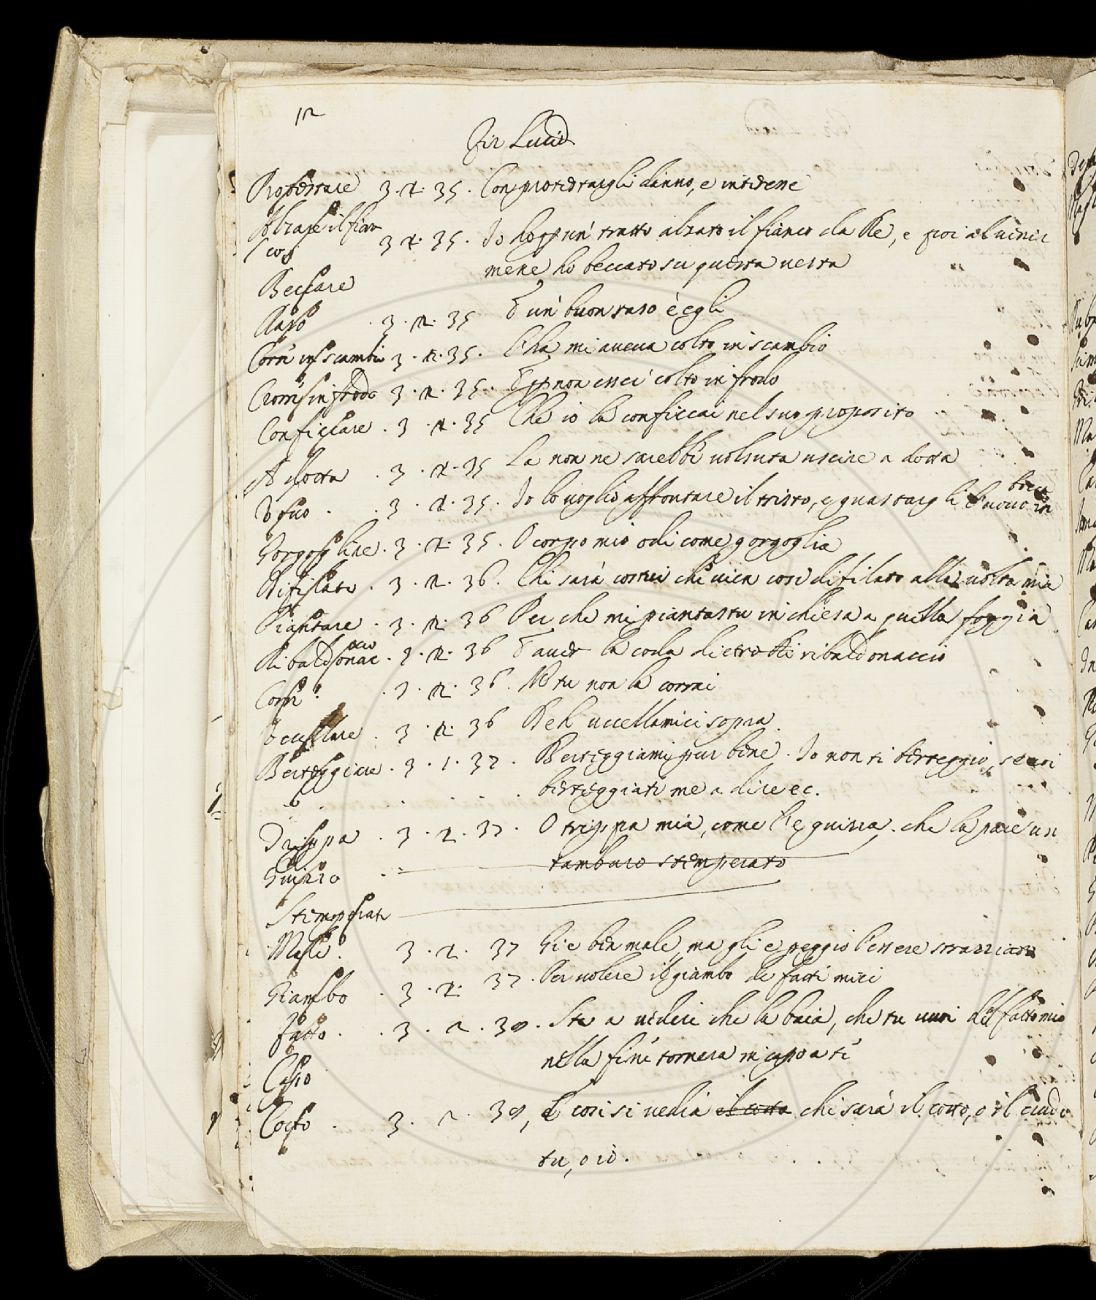 12
Fir Lucid
Protestare 3. 2. 35. Con protestargli danno, e interesse
Alzare il fian
co 3 2. 35. Io ho pur un tratto alzato il fianco da Re, e poi al uenir
Beccare mene ho beccato su questa uesta
Raso . 3. 2. 35 E un buon raso è egli
Corre in scambio 3. 2. 35. Ella mi aueua colto in scambio
Corre in frodo 3. 2. 35. E pur non ci sei colto in frodo
Conficcare. 3. 2. 35 Che io la conficcai nel suo proposito
A dotta . 3. 2. 35 La non ne sarebbe uoluta uscire a dotta
Vouo . . 3. 2. 35. Io lo uoglio affrontare il tristo, e guastargli l'uouo in
bocca
Gorgogliare. 3. 2. 35. O corpo mio odi come gorgoglia
Difilato . 3. 2. 36. Chi sarà costei che uien così difilato alla uolta mia
Piantare . 3. 2. 36 Per che mi piantastu in chiesa a quella foggia
Ribaldonaccio . 3. 2. 36 E auer la coda di cotesti ribaldonaccio
Corre . . 3. 2. 36. No tu non la corrai
Vccellare . 3. 2. 36 Beh uccellamici sopra
Berteggiare . 3. 1. 37. Berteggiami pur bene. Io non ti berteggio, se uoi
berteggiate me a dire ec.
Trippa . 3. 2. 37. O trippa mia, come l'è guizza. che la pare un
Guizzo . tamburo stemperato
Stemperato
Male . 3. 2. 37 Gli è ben male, ma gli è peggio l'essere straziato
Giambo . 3. 2. 37. Per uolere il giambo de fatti miei
Fatto . . 3. 2. 38. Sta a uedere che la baia, che tu uuoi del fatto mio
Capo . nella fine tornerà in capo a te
Cotto . 3. 2. 38, E così si uedrà il cotto chi sarà il cotto, o il crudo
tu, o io.